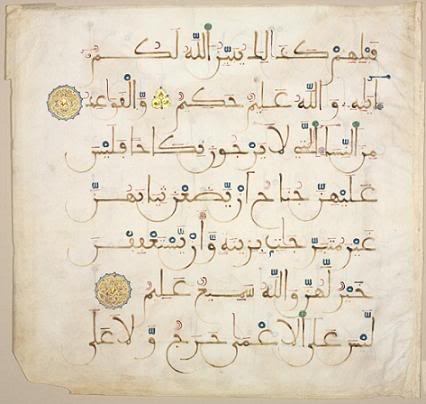 قَبْلِهِمْ كَذَٰلِكَ يُبَيِّنُ اللَّهُ لَكُمْ
ءَايَٰتِهِ وَاللَّهُ عَلِيمٌ حَكِيمٌ وَّالْقَوَٰعِدُ
مِنَ النِّسَاءِ الَّٰتِي لَا يَرْجُونَ نِكَاحًا فَلَيْسَ
عَلَيْهِنَّ جُنَاحٌ أَنْ يَّضَعْنَ ثِيَابَهُنَّ
غَيْرَ مُتَبَرِّجَٰتٍ بِزِينَةٍ وَّأَنْ يَّسْتَعْفِفْنَ
خَيْرٌ لَّهُنَّ وَاللَّهُ سَمِيعٌ عَلِيمٌ
لَّيْسَ عَلَى الْأَعْمَىٰ حَرَجٌ وَّلَا عَلَى